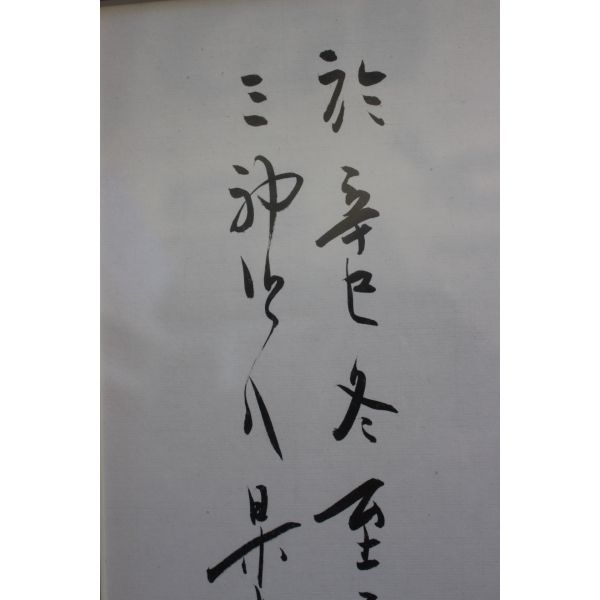 於辛巳冬至
三神山人